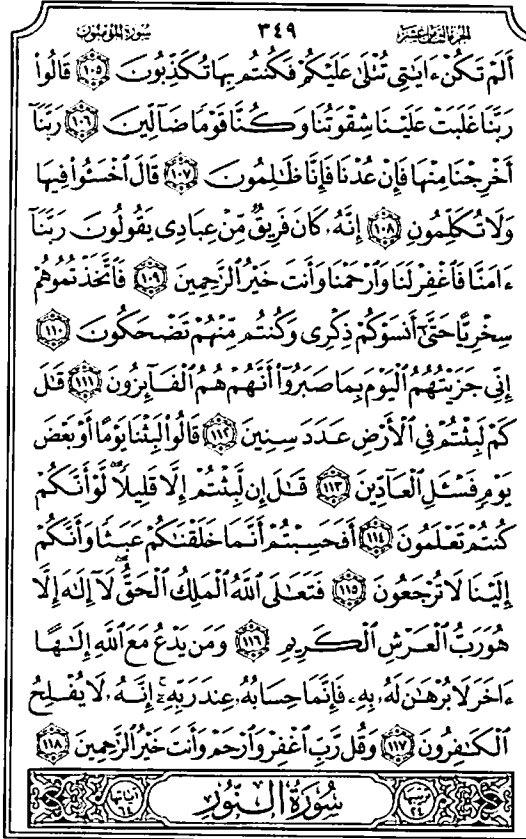 الجزء الثامن عشر ٣٤٩ سورة المؤمنون
أَلَمْ تَكُنْ ءَايَٰتِى تُتْلَىٰ عَلَيْكُمْ فَكُنتُم بِهَا تُكَذِّبُونَ ١٠٥ قَالُوا۟
رَبَّنَا غَلَبَتْ عَلَيْنَا شِقْوَتُنَا وَكُنَّا قَوْمًا ضَآلِّينَ ١٠٦ رَبَّنَآ
أَخْرِجْنَا مِنْهَا فَإِنْ عُدْنَا فَإِنَّا ظَٰلِمُونَ ١٠٧ قَالَ ٱخْسَـُٔوا۟ فِيهَا
وَلَا تُكَلِّمُونِ ١٠٨ إِنَّهُۥ كَانَ فَرِيقٌ مِّنْ عِبَادِى يَقُولُونَ رَبَّنَآ
ءَامَنَّا فَٱغْفِرْ لَنَا وَٱرْحَمْنَا وَأَنتَ خَيْرُ ٱلرَّٰحِمِينَ ١٠٩ فَٱتَّخَذْتُمُوهُمْ
سِخْرِيًّا حَتَّىٰٓ أَنسَوْكُمْ ذِكْرِى وَكُنتُم مِّنْهُمْ تَضْحَكُونَ ١١٠
إِنِّى جَزَيْتُهُمُ ٱلْيَوْمَ بِمَا صَبَرُوٓا۟ أَنَّهُمْ هُمُ ٱلْفَآئِزُونَ ١١١ قَٰلَ
كَمْ لَبِثْتُمْ فِى ٱلْأَرْضِ عَدَدَ سِنِينَ ١١٢ قَالُوا۟ لَبِثْنَا يَوْمًا أَوْ بَعْضَ
يَوْمٍ فَسْـَٔلِ ٱلْعَآدِّينَ ١١٣ قَٰلَ إِن لَّبِثْتُمْ إِلَّا قَلِيلًا ۖ لَّوْ أَنَّكُمْ
كُنتُمْ تَعْلَمُونَ ١١٤ أَفَحَسِبْتُمْ أَنَّمَا خَلَقْنَٰكُمْ عَبَثًا وَأَنَّكُمْ
إِلَيْنَا لَا تُرْجَعُونَ ١١٥ فَتَعَٰلَى ٱللَّهُ ٱلْمَلِكُ ٱلْحَقُّ ۖ لَآ إِلَٰهَ إِلَّا
هُوَ رَبُّ ٱلْعَرْشِ ٱلْكَرِيمِ ١١٦ وَمَن يَدْعُ مَعَ ٱللَّهِ إِلَٰهًا
ءَاخَرَ لَا بُرْهَٰنَ لَهُۥ بِهِۦ فَإِنَّمَا حِسَابُهُۥ عِندَ رَبِّهِۦٓ ۚ إِنَّهُۥ لَا يُفْلِحُ
ٱلْكَٰفِرُونَ ١١٧ وَقُل رَّبِّ ٱغْفِرْ وَٱرْحَمْ وَأَنتَ خَيْرُ ٱلرَّٰحِمِينَ ١١٨
ترتيبها ٢٤ سُورَةُ النُّورِ آياتها ٦٤